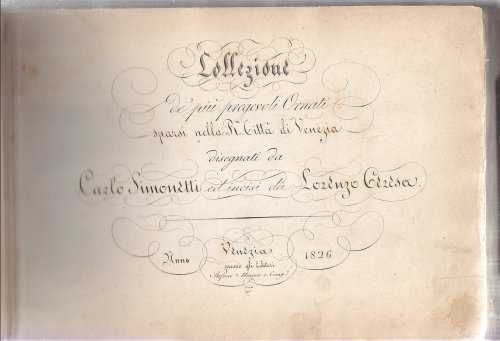 Collezione
de' più pregevoli Ornati
sparsi nella R. Città di Venezia
disegnati da
Carlo Simonetti ed incisi da Lorenzo Ceresa.
Venezia
Anno 1826
presso gli Editori
e Comp.